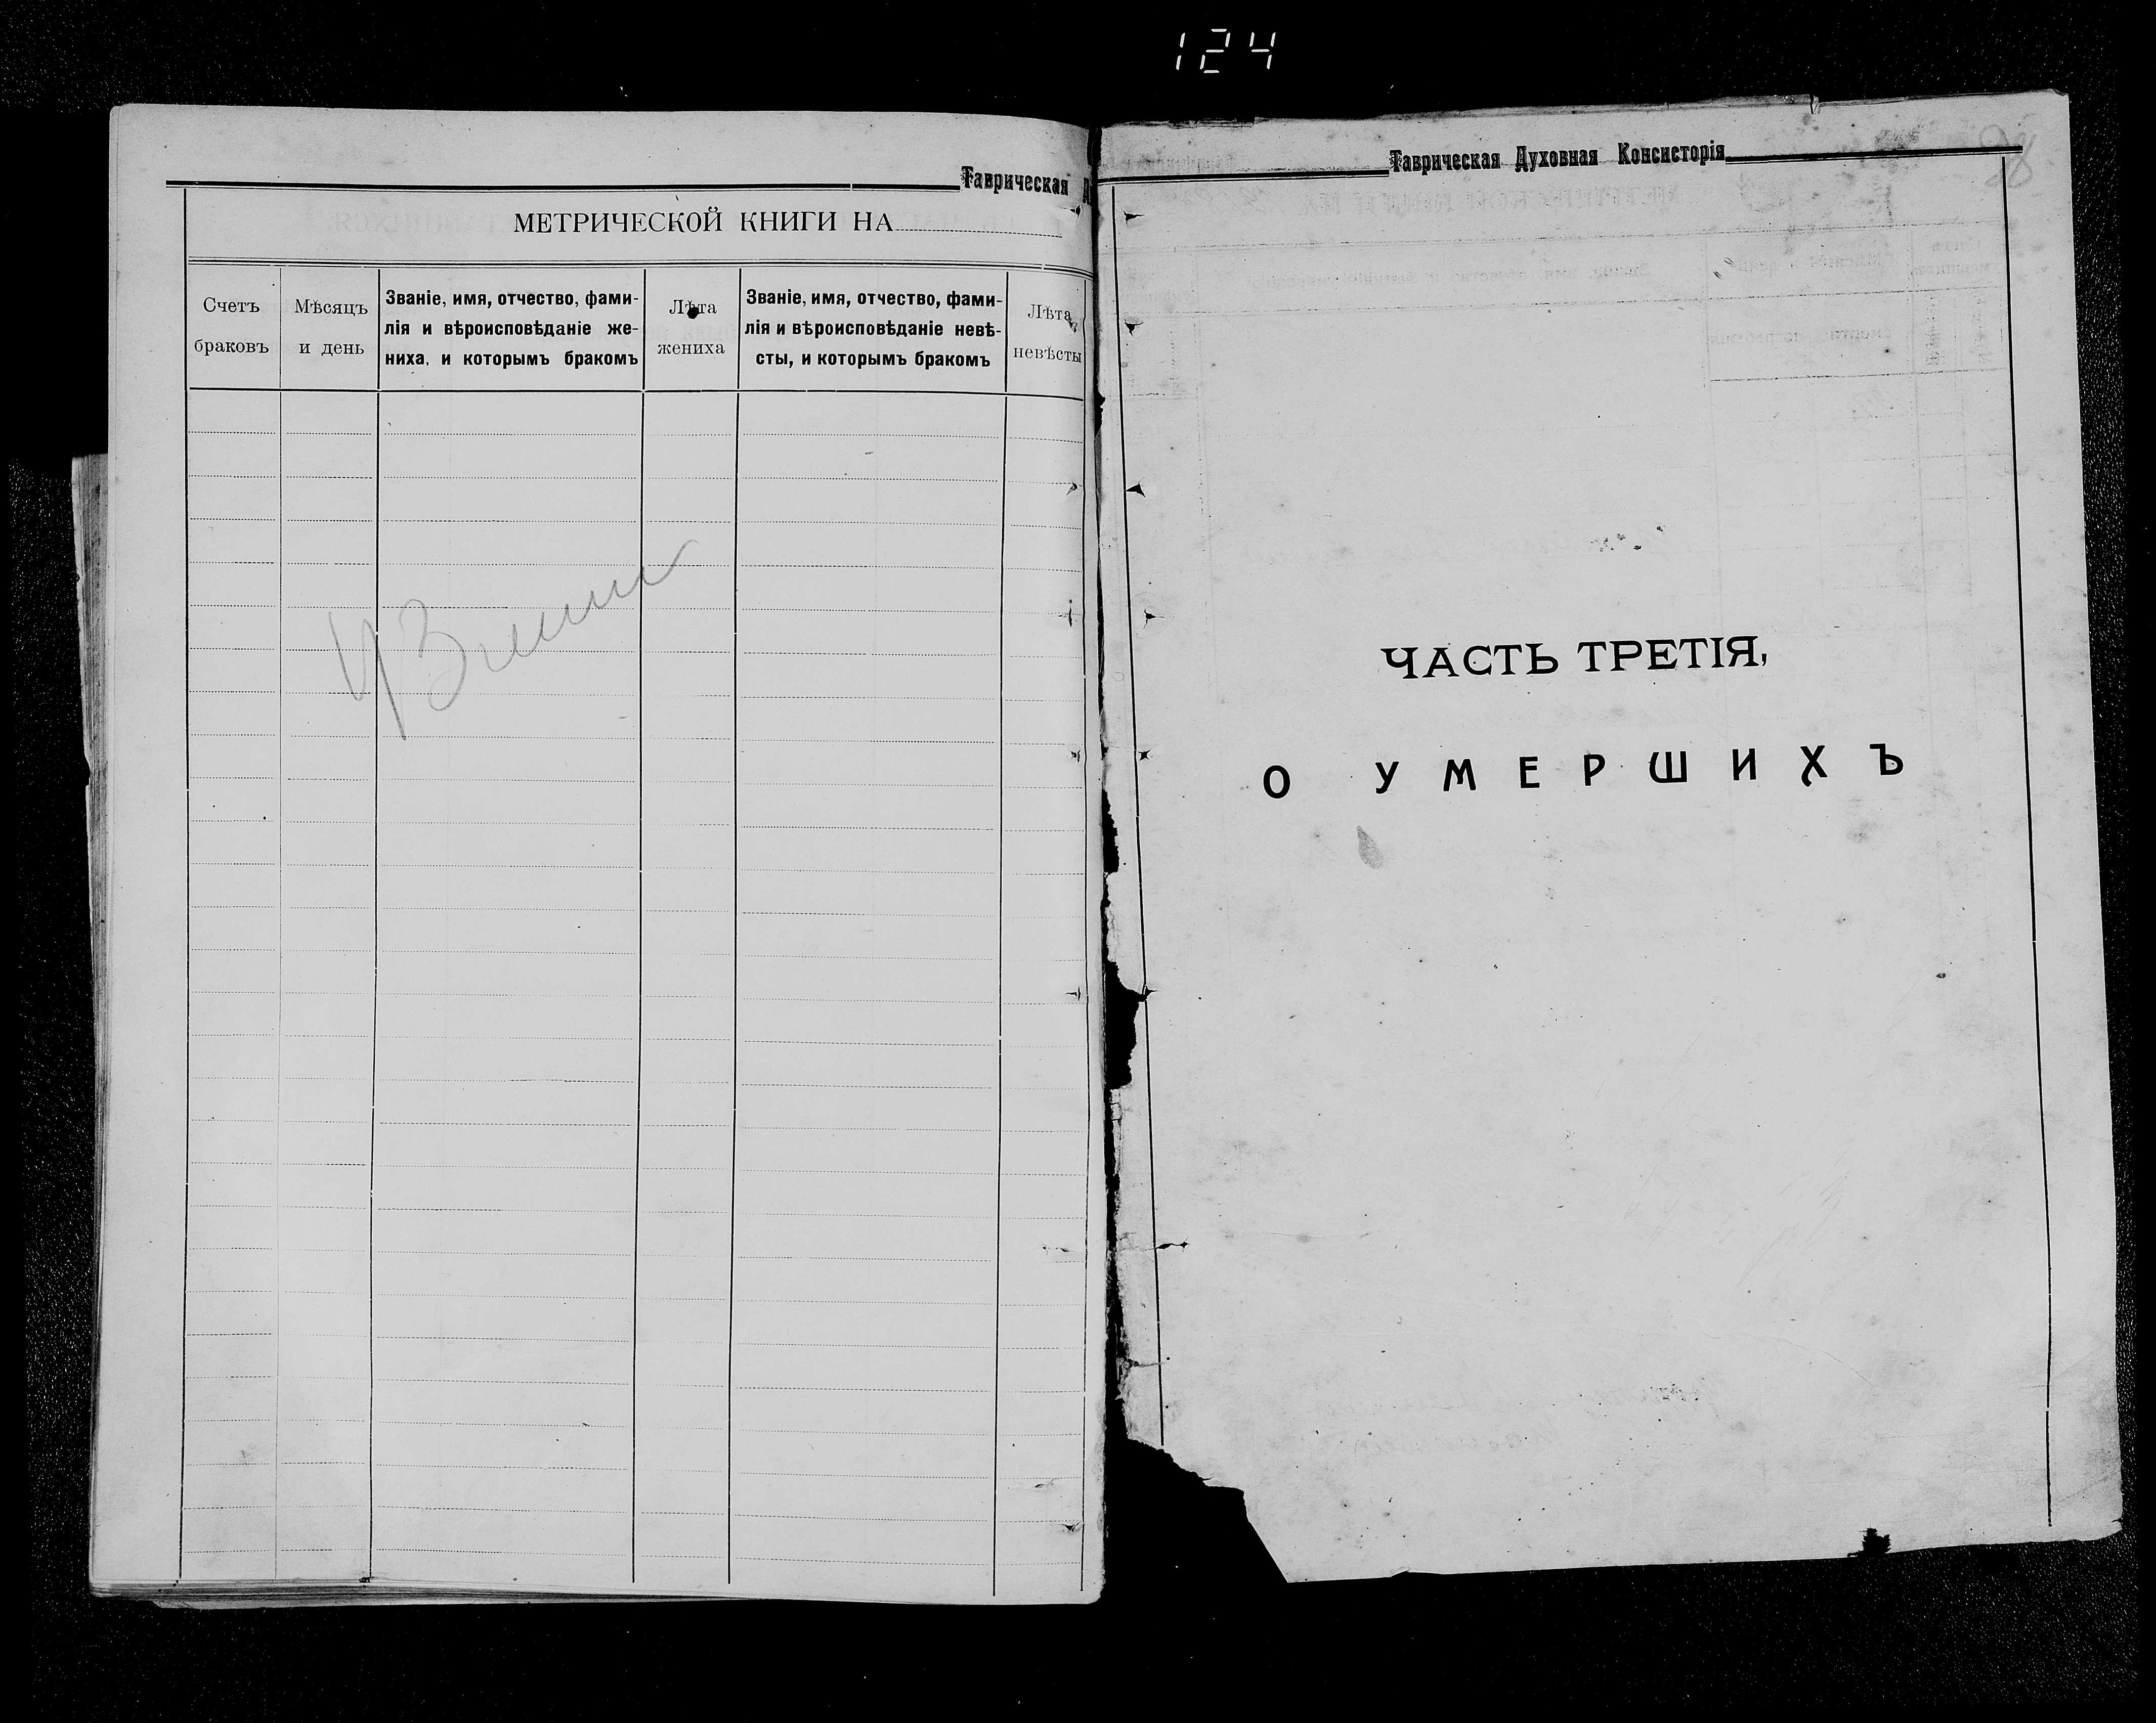 124
Таврическая
МЕТРИЧЕСКОЙ КНИГИ НА
Счетъ
браковъ
Мѣсяцъ
и день
Званіе, имя, отчество, фами-
лія и вѣроисповѣданіе же-
ниха, и которымъ бракомъ
Лѣта
жениха
Званіе, имя, отчество, фами-
лія и вѣроисповѣданіе невѣ-
сты, и которымъ бракомъ
Лѣта
невѣсты
Таврическая Духовная Консисторія
ЧАСТЬ ТРЕТІЯ,
О УМЕРШИХЪ